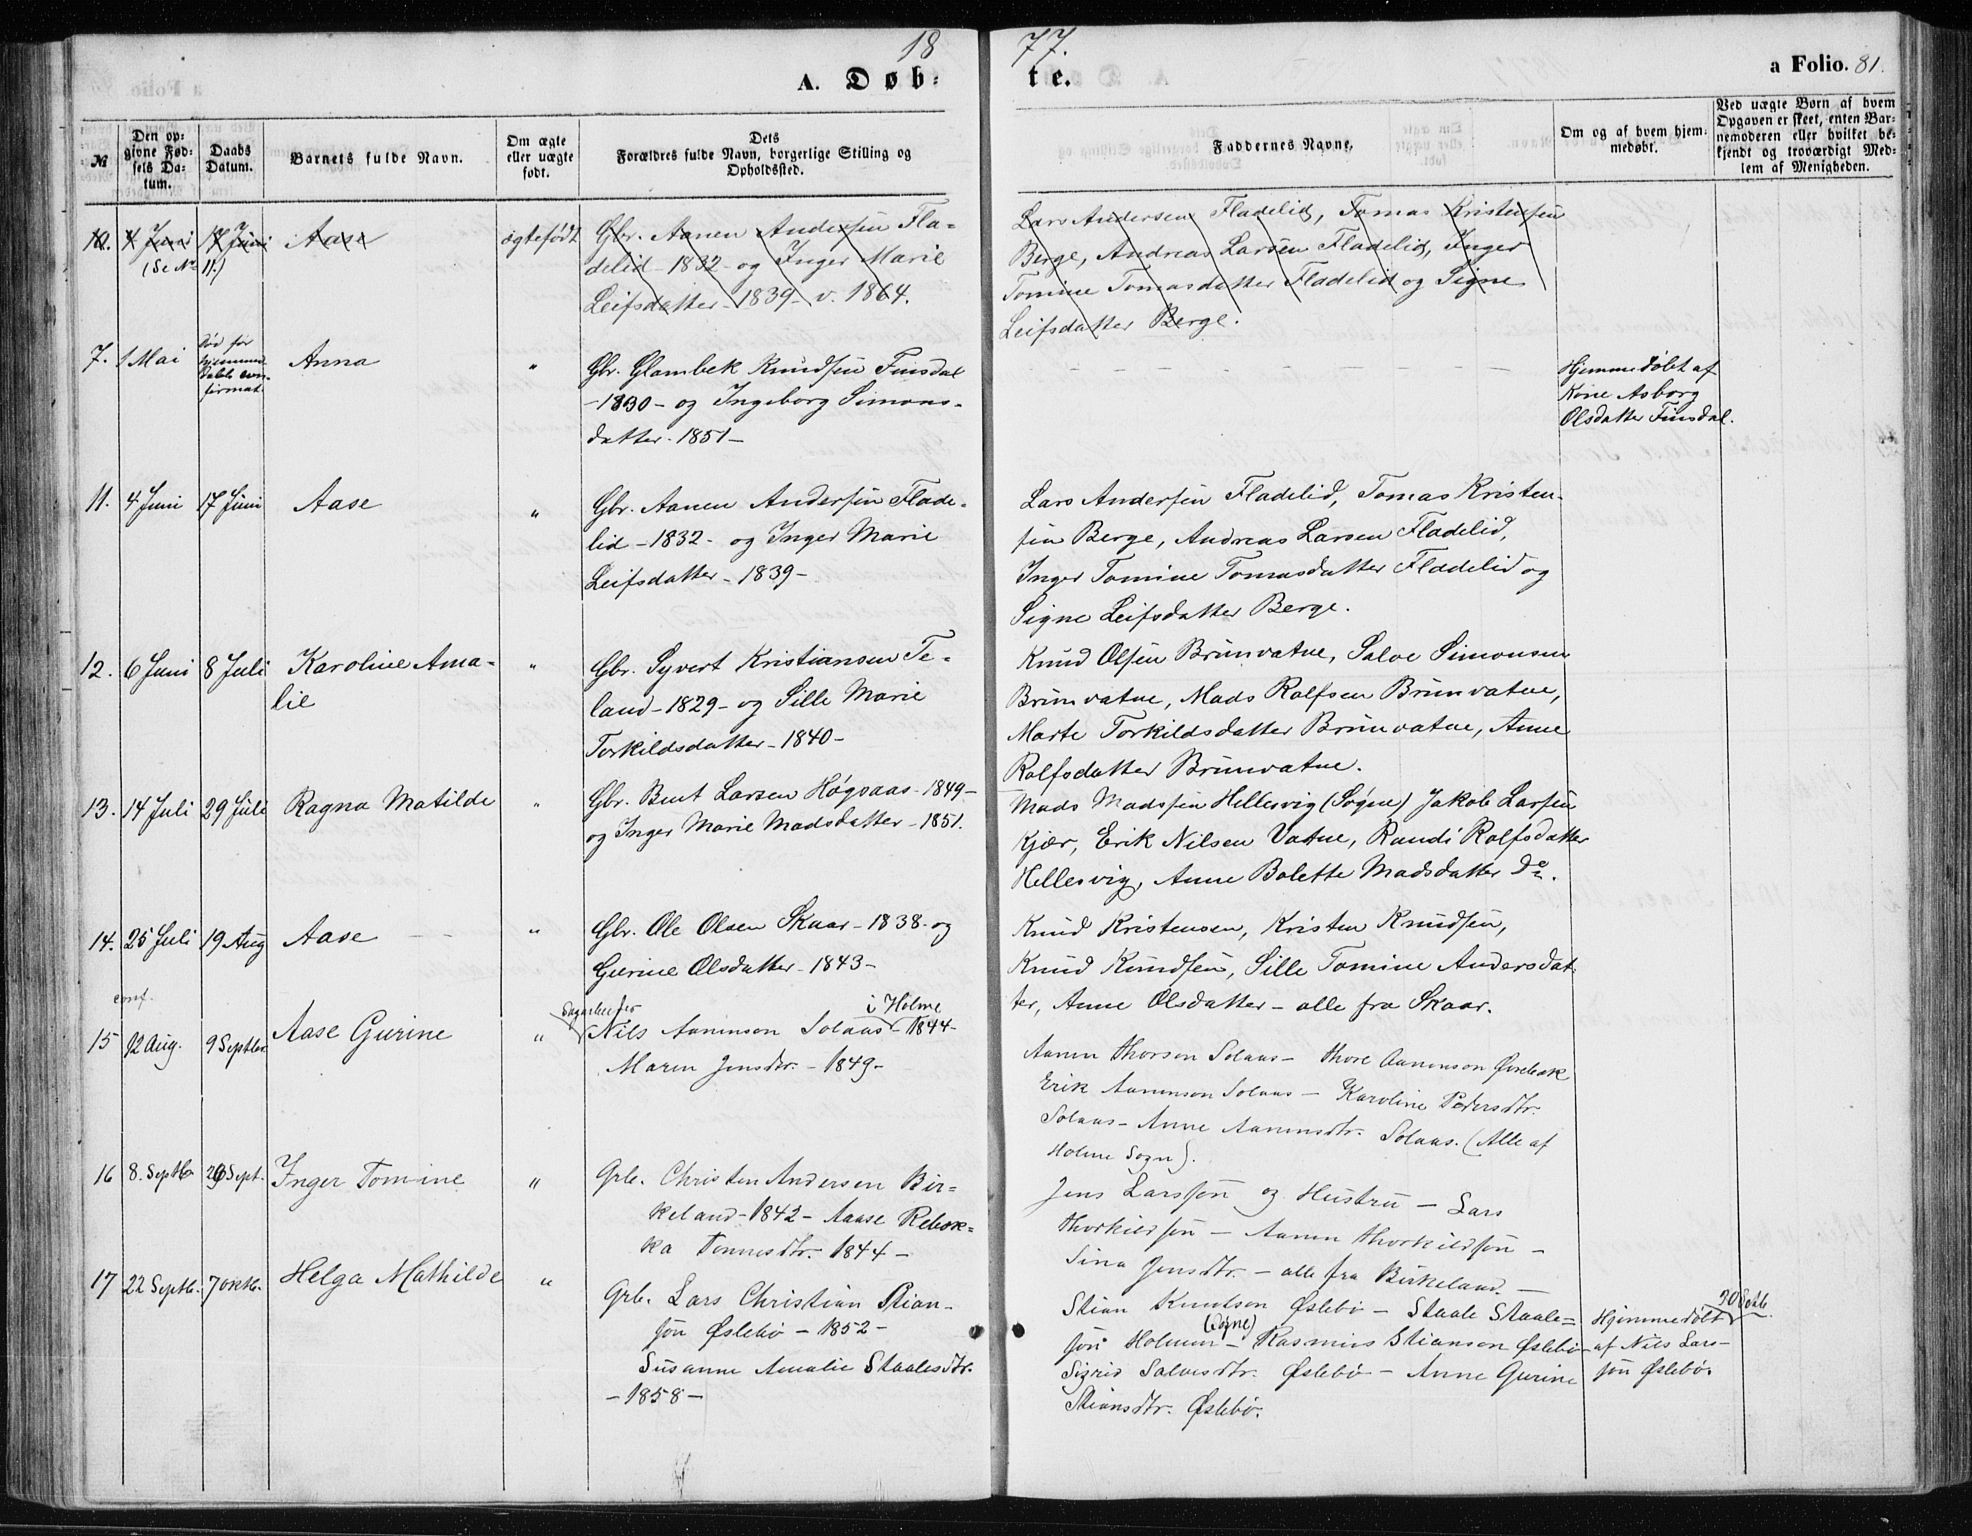 18 77.
A. Døb- te. a Folio. 81.
№
Den op-
givne Fød-
sels Da-
tum.
Daabs
Datum.
Barnets fulde Navn.
Om ægte
eller uægte
født.
Dets
Forældres fulde Navn, borgerlige Stilling og
Opholdssted.
Faddernes Navne.
Om og af hvem hjem-
medøbt.
Ved uægte Børn af hvem
Opgaven er skeet, enten Bar-
nemoderen eller hvilket be-
kjendt og troværdigt Med-
lem af Menigheden.
10. 4 Juni 17 Juni Aase ægtefødt
(Se No 11.)
Gbr. Aanen Andersen Fla-
delid 1832 og Inger Marie
Leifsdatter - 1839 - v. 1864.
Lars Andersen Fladelid, Tomas Kristensen
Berge, Andreas Larsen Fladelid, Inger
Tomine Tomasdatter Fladelid og Signe
Leifsdatter Berge.
7. 1 Mai
Død før
hjemme
Daab con-
firmat
Anna "
Gbr. Glambek Knudsen Finsdal
- 1830 - og Ingeborg Simons-
datter - 1851 -
Hjemmedøbt af
Kone Asborg
Olsdatter Finsdal.
11. 4 Juni 17 Juni Aase "
Gbr. Aanen Andersen Flade-
lid - 1832 - og Inger Marie
Leifsdatter - 1839 -
Lars Andersen Fladelid, Tomas Kristen-
sen Berge, Andreas Larsen Fladelid,
Inger Tomine Tomasdatter Fladelid og
Signe Leifsdatter Berge.
12. 6 Juni 8 Juli Karoline Ama-
lie "
Gbr. Syvert Kristiansen Te-
land - 1829 - og Sille Marie
Torkildsdatter - 1840 -
Knud Olsen Brunvatne, Salve Simonsen
Brunvatne, Mads Rolfsen Brunvatne,
Marte Torkildsdatter Brunvatne, Anne
Rolfsdatter Brunvatne.
13. 14 Juli 29 Juli Ragna Matilde "
Gbr. Bent Larsen Høgsaas - 1849 -
og Inger Marie Madsdatter - 1851.
Mads Madsen Hellesvig (Søgne) Jakob Larsen
Kjær, Erik Nilsen Vatne, Randi Rolfsdatter
Hellesvig, Anne Bolette Madsdatter Do.
14. 25 Juli 19 Aug Aase "
Gbr. Ole Olsen Skaar - 1838 - og
Gurine Olsdatter - 1843 -
Knud Kristensen, Kristen Knudsen,
Knud Knudsen, Sille Tomine Andersdat-
ter, Anne Olsdatter - alle fra Skaar.
conf.
15 12 Aug. 9 Septbr. Aase Gurine "
i Holme
Nils Aanenson Solaas - 1844 -
Maren Jensdtr. - 1849 -
Aanen Thorson Solaas - Thore Aanenson Øvrebøk
Erik Aanenson Solaas - Karoline Pedersdtr.
Solaas - Anne Aanensdtr. Solaas. (Alle af
Holme Sogn).
16 8. Septbr Sept. Inger Tomine "
Grb. Christen Andersen Bir-
keland - 1842 - Aase Rebek-
ka Tønnesdtr. 1844 -
Jens Larsson og Hustru - Lars
Thorkildson - Aanen Thorkildson -
Sina Jensdtr. - alle fra Birkeland. -
17 22 Septb. 7 oktb. Helga Mathilde "
Grb. Lars Christian Stian-
son Øslebø - 1852 -
Susanne Amalie Staalesdtr.
- 1858 -
Stian Knutson Øslebø - Staale Staale-
son Holmen (Søgne) - Rasmus Stianson Øslebø -
Sigrid Salvesdtr. Øslebø - Anne Gurine
Stiansdtr. Øslebø.
Hjemmedøbt
af Nils Lars-
son Øslebø.